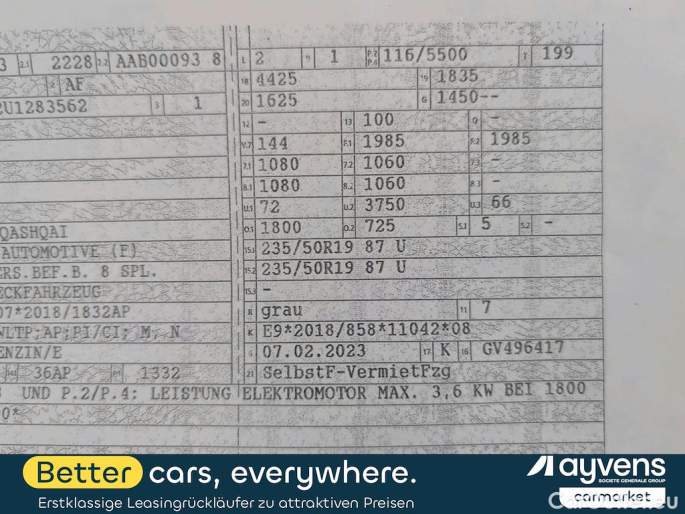 3 2.1 2228 2.2 AAB00093 8 L 2 9 1 P.2 P.4 116/5500 T 199
2 AF 18 4425 19 1835
2U1283562 3 1 20 1625 G 1450--
12 - 13 100 Q -
V.7 144 F.1 1985 F.2 1985
7.1 1080 7.2 1060 7.3 -
8.1 1080 8.2 1060 8.3 -
U.1 72 U.2 3750 U.3 66
QASHQAI O.1 1800 O.2 725 S.1 5 S.2 -
AUTOMOTIVE (F) 15.1 235/50R19 87 U
ERS.BEF.B. 8 SPL. 15.2 235/50R19 87 U
ECKFAHRZEUG 15.3 -
07*2018/1832AP R grau 11 7
WLTP;AP;PI/CI; M, N K E9*2018/858*11042*08
ENZIN/E 6 07.02.2023 17 K 16 GV496417
36AP P.1 1332 21 SelbstF-VermietFzg
UND P.2/P.4: LEISTUNG ELEKTROMOTOR MAX. 3,6 KW BEI 1800
0*
Better cars, everywhere.
Erstklassige Leasingrückläufer zu attraktiven Preisen
ayvens
SOCIETE GENERALE GROUP
carmarket